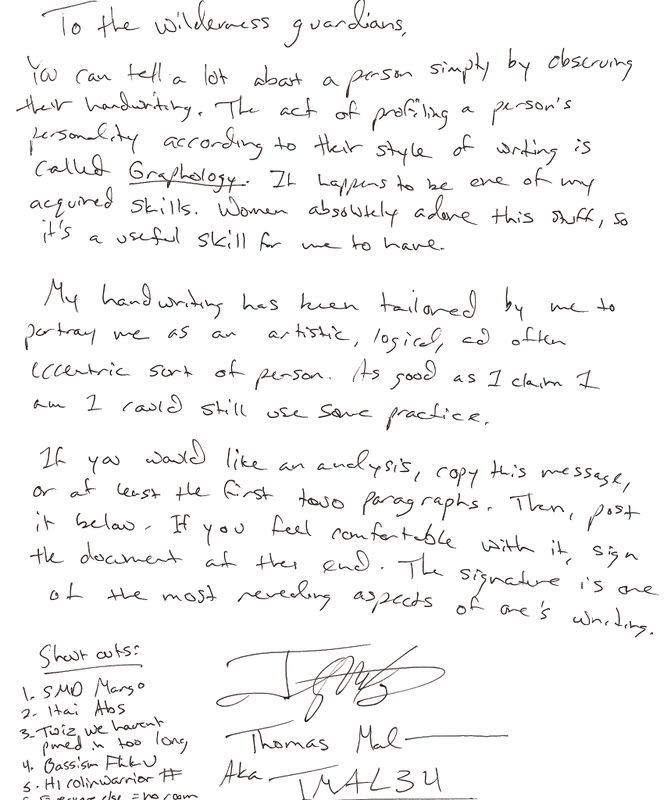 To the wilderness guardians,
You can tell a lot about a person simply by observing
their handwriting. The act of profiling a person's
personality according to their style of writing is
called Graphology. It happens to be one of my
acquired skills. Women absolutely adore this stuff, so
it's a useful skill for me to have.
My handwriting has been tailored by me to
portray me as an artistic, logical, ad often
eccentric sort of person. As good as I claim I
am I could still use some practice.
If you would like an analysis, copy this message,
or at least the first two paragraphs. Then, post
it below. If you feel comfortable with it, sign
the document at the end. The signature is one
of the most revealing aspects of one's writing.
Shout outs:
1. SMD Margo
2. Itai Abs
3. Twiz, we havent
pmed in too long
4. Bassism
5. H1 colinwarrior #
Everyone else = no room
Thomas Mal
Aka IMAL34